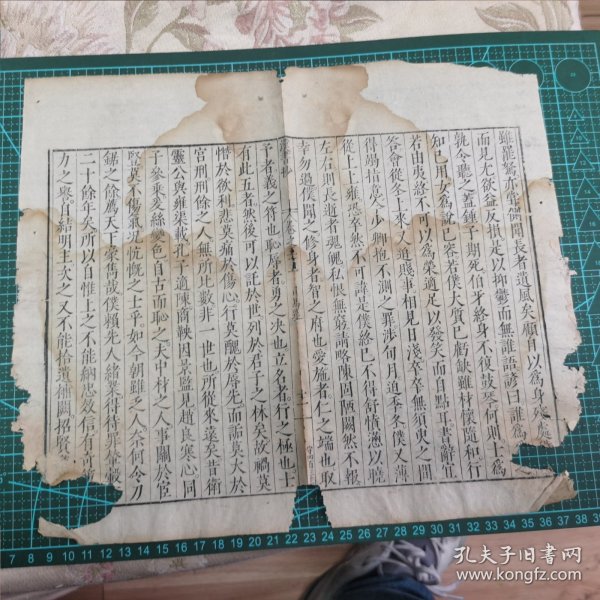 雖罷駑亦嘗側聞長者遺風矣顧自以為身殘處
而見尤欲益反損是以抑鬱而無誰語諺曰誰為
孰令聽之蓋鍾子期死伯牙終身不復鼓琴何則士為
知己用女為說己容若僕大質已虧缺雖材懷隨和行
若由夷終不可以為榮適足以發笑而自點耳書辭宜
答會從東上來又迫賤事相見日淺卒卒無須臾之間
得竭指意今少卿抱不測之罪涉旬月迫季冬僕又薄
從上上雍恐卒然不可諱是僕終已不得舒憤懣以曉
左右則長逝者魂魄私恨無窮請略陳固陋闕然不報
幸勿過僕聞之修身者智之府也愛施者仁之端也取
書抄
予者義之符也恥辱者勇之決也立名者行之極也士
有此五者然後可以託於世列於君子之林矣故禍莫
憯於欲利悲莫痛於傷心行莫醜於辱先而詬莫大於
宮刑刑餘之人無所比數非一世也所從來遠矣昔衛
靈公與雍渠載孔子適陳商鞅因景監見趙良寒心同
子參乘爰絲變色自古而恥之夫中材之人事關於宦
豎莫不傷氣況忼慨之士乎如今朝雖乏人奈何令刀
鋸之餘薦天下豪雋哉僕賴先人緒業得待罪輦轂
二十餘年矣所以自惟上之不能納忠效信有奇策
力之譽自結明主次之又不能拾遺補闕招賢
7 8 9 10 11 12 13 14 15 16 17 18 19 20 21 22 23 24 25 26 27 28 29 30 31 32 33 34 35 36 37 38 39
孔夫子旧书网
www.kongfz.com